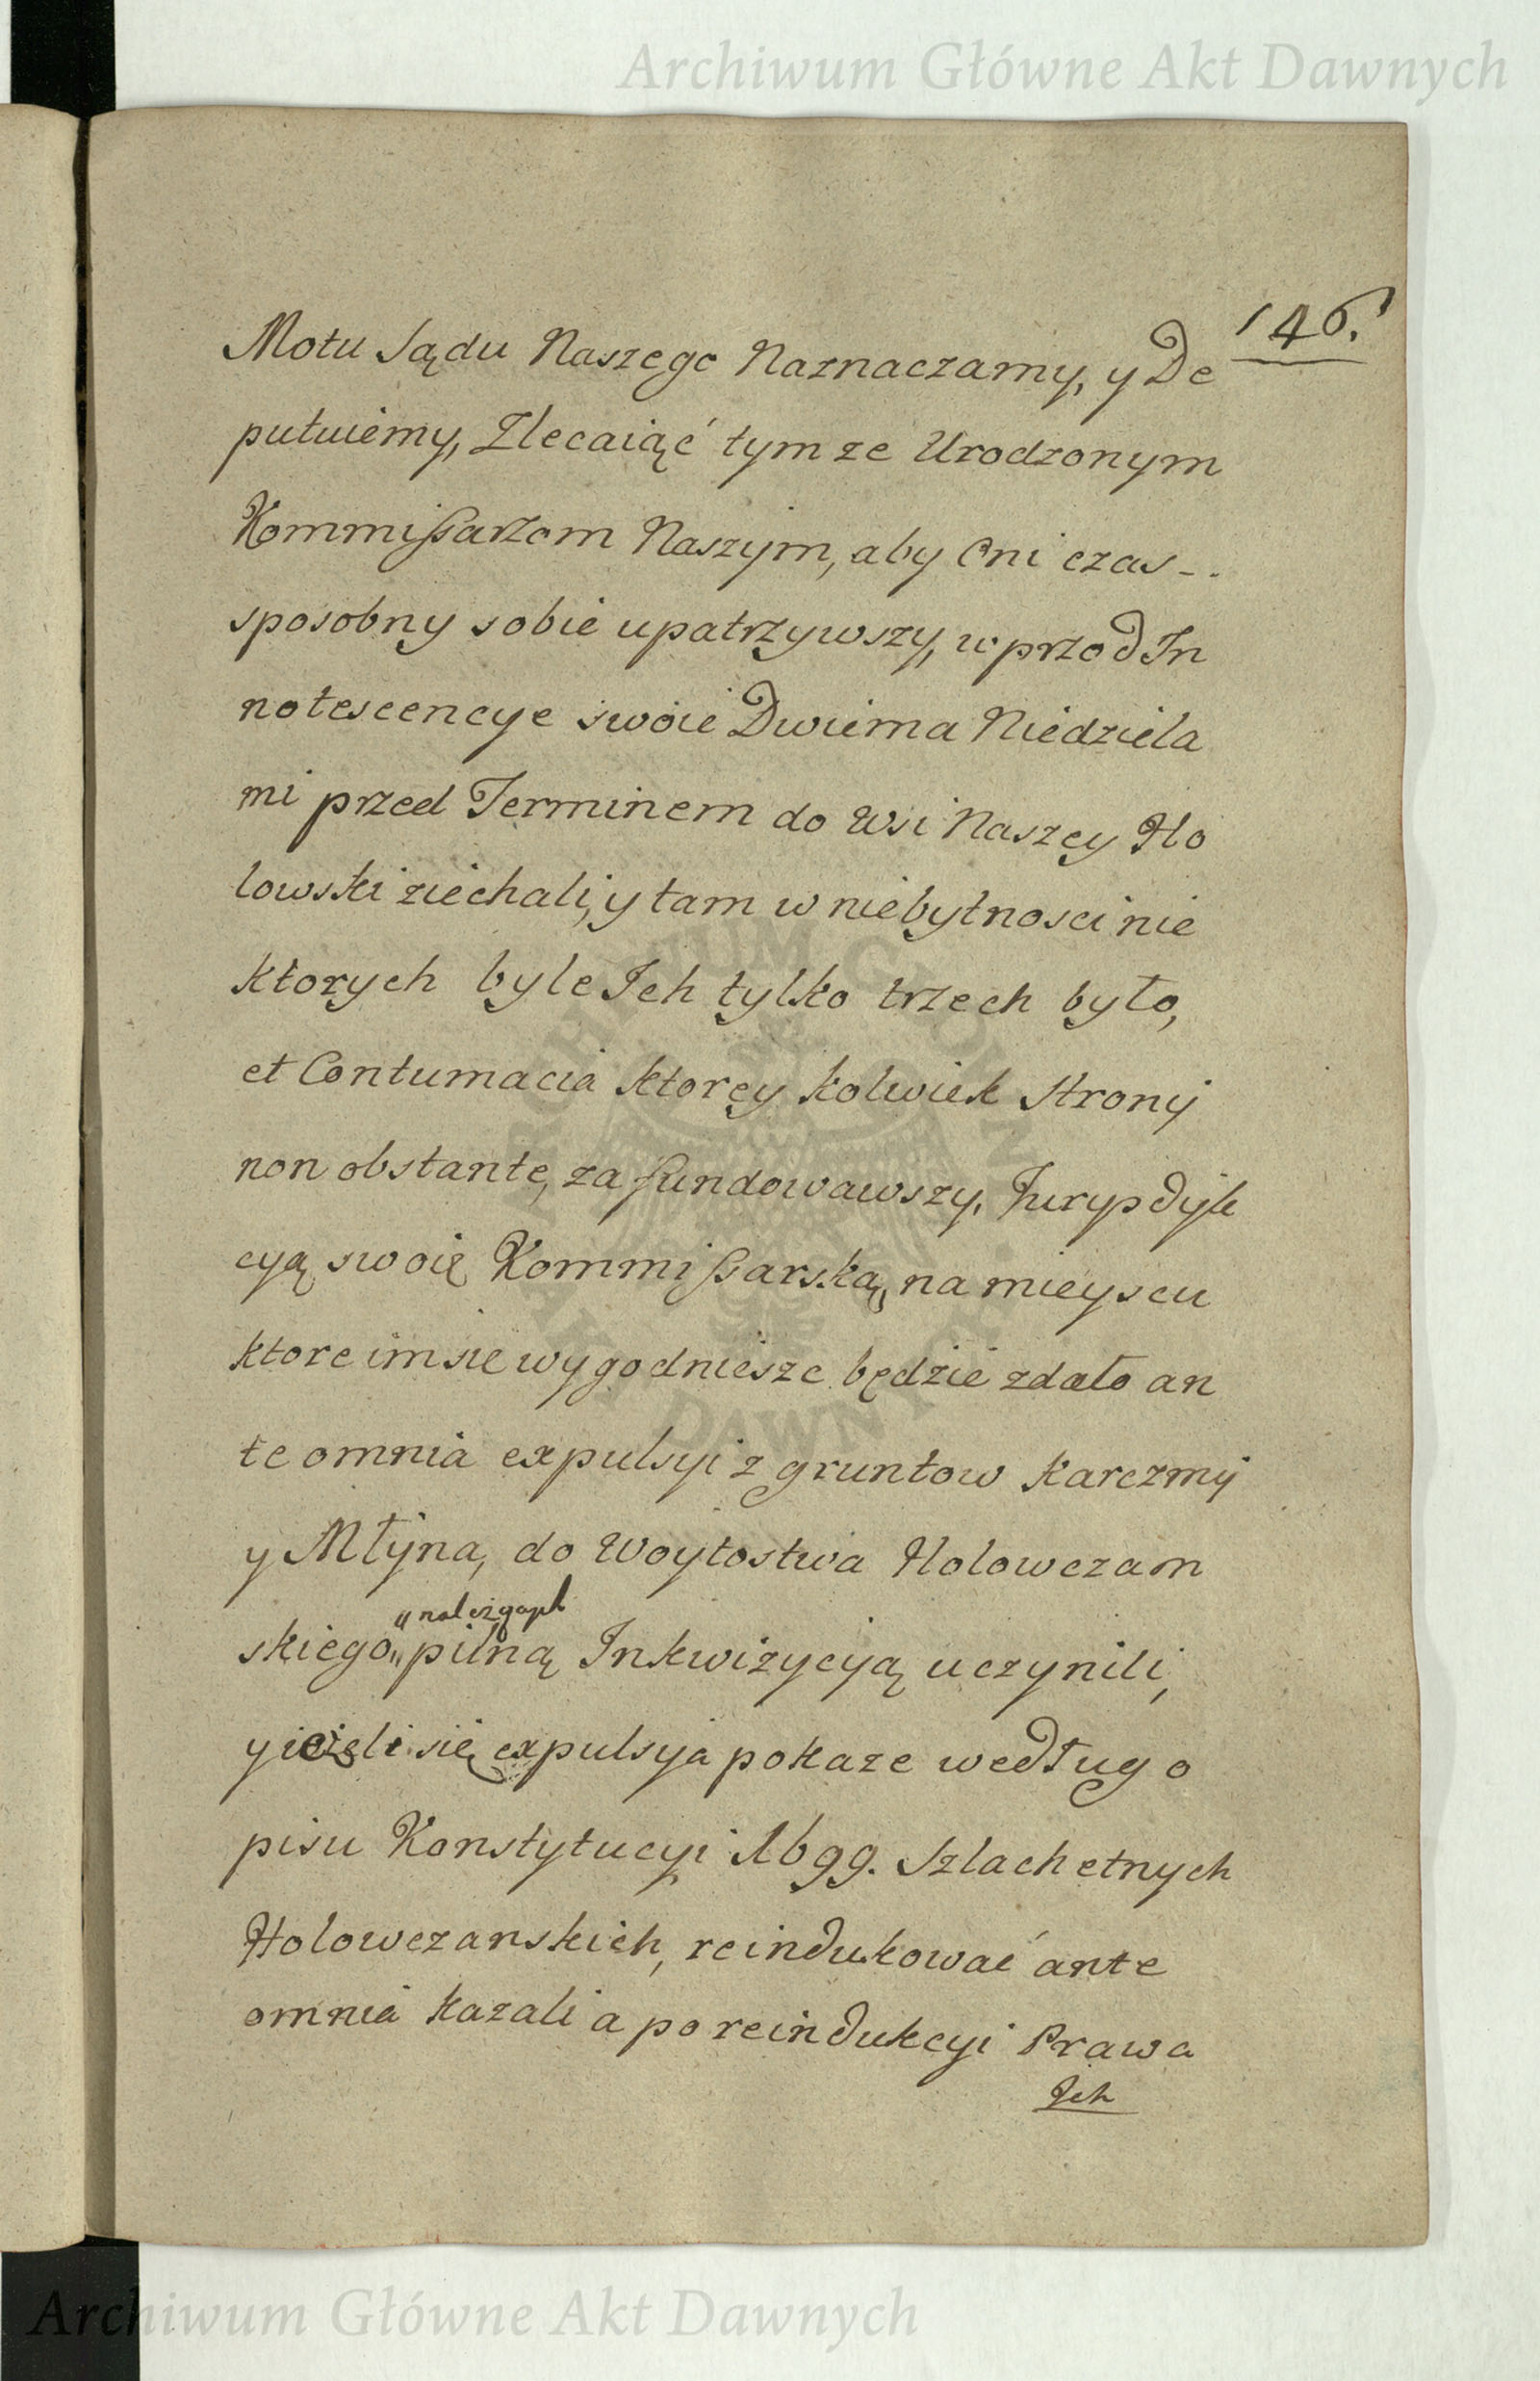 Archiwum Główne Akt Dawnych
146.
Motu Sądu Naszego Naznaczamy, y De
putuiemy, Zlecaiąć tym ze Urodzonym
Kommißarzom Naszym, aby Oni czas - .
sposobny sobie upatrzywszy, w przod In
notescencye swoie Dwiema Niedziela
mi przed Terminem do Wsi Naszey Ho
lowski ziechali, y tam w niebytnosci nie
ktorych byle Ich tylko trzech było,
et Contumacia ktorey kolwiek Strony
non obstante, za fundowawszy, Jurysdyk
cyą swoię Kommißarską, na mieyscu
ktore im się wygodniesze będzie zdało an
te omnia expulsyi z gruntow karczmy
y Młyna, do Woytostwa Holowczam
" należącyh
skiego," pilną Inkwizycyją uczynili,
y ieżeli się expulsya pokaze według o
pisu Konstytucyi 1699. Szlachetnych
Holowczanskich, reindukować ante
omnia kazali a po reindukcyi Prawa
Ich
Archiwum Główne Akt Dawnych